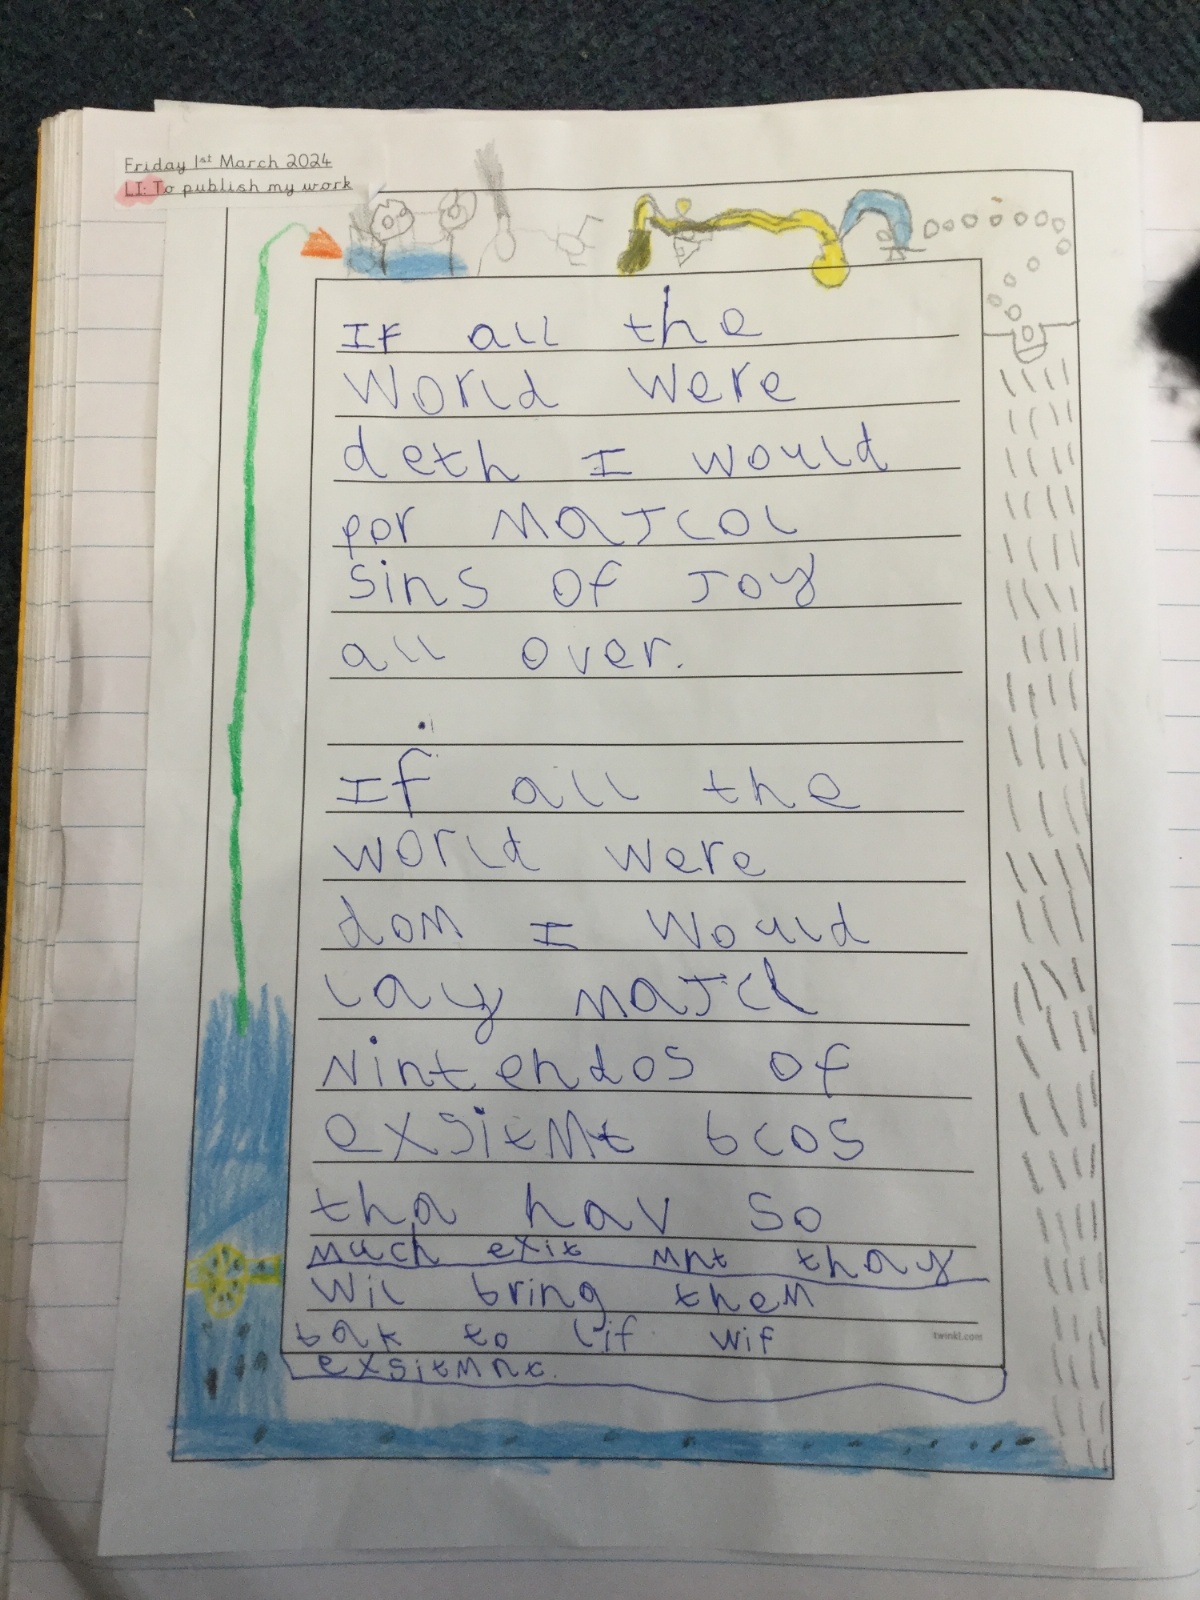 Friday 1st March 2024
LI: To publish my work
If all the
world were
deth I would
por majcol
sins of Joy
all over.
If all the
world were
dom I would
lay majcl
Nintendos of
exsitmt bcos
tha hav so
much exit mnt thay
wil bring them
bak to lif wif
twinkl.com
exsitmnt.